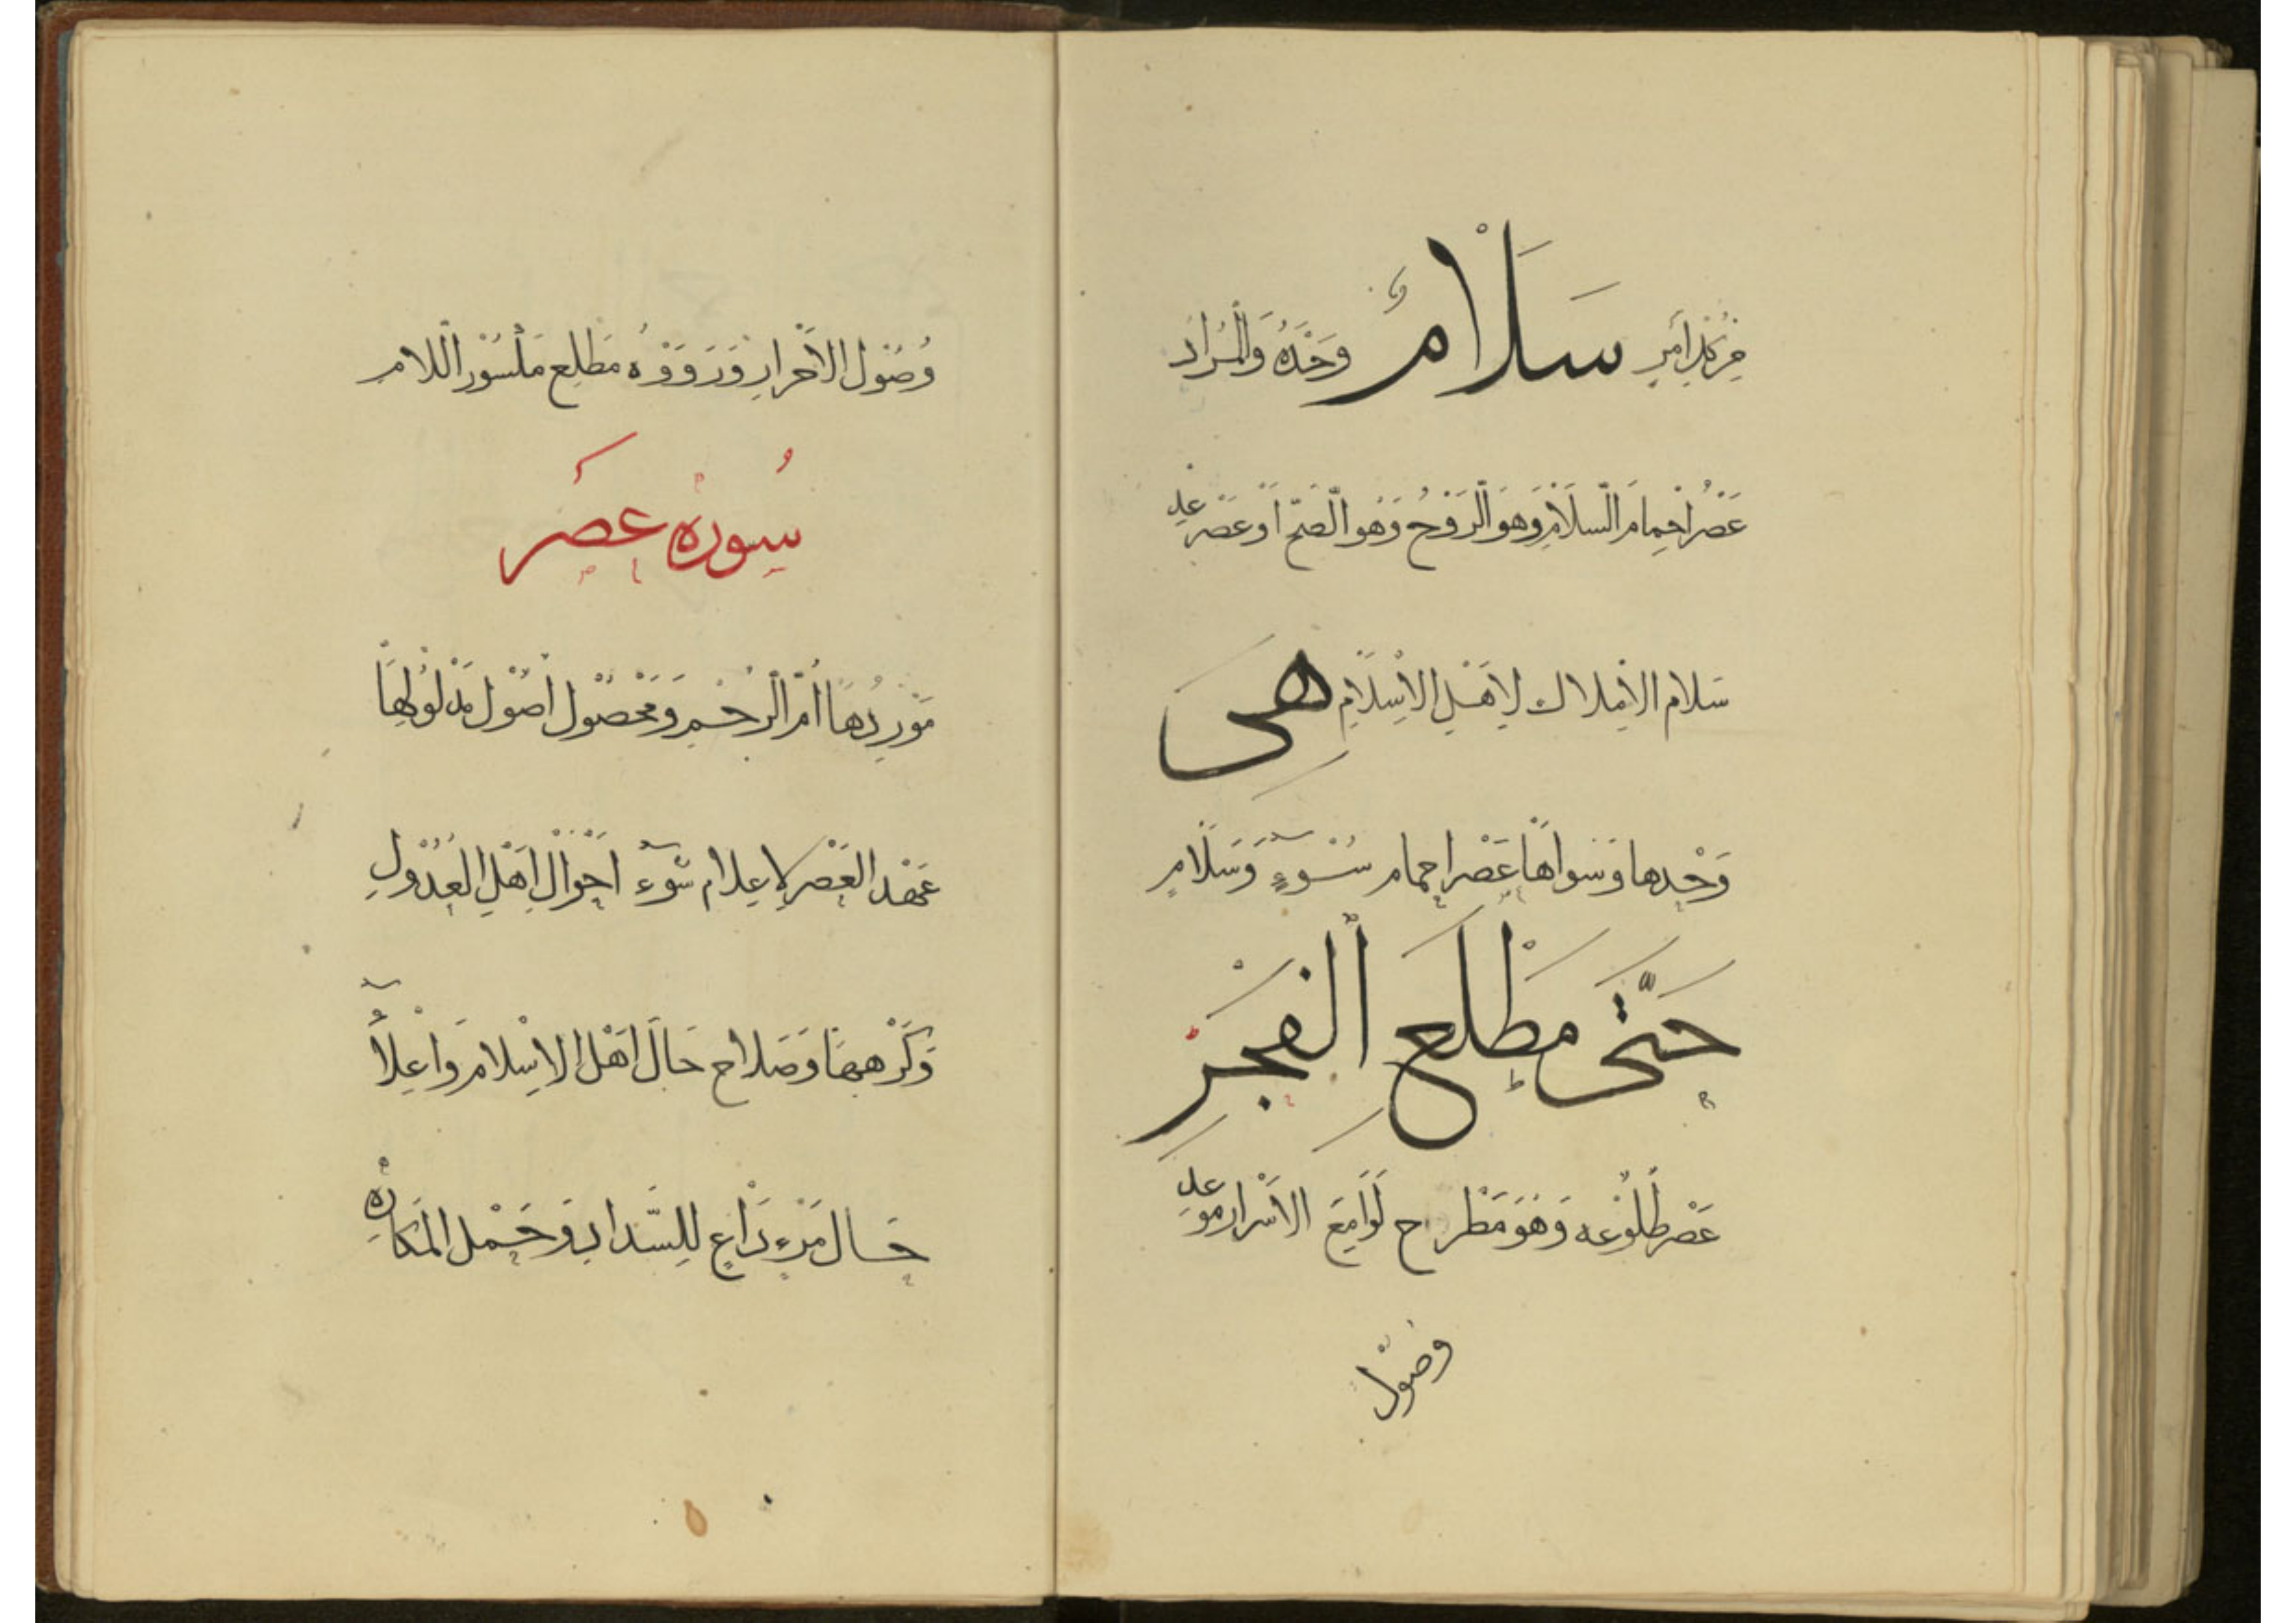 مِن كُلِّ أَمْرٍ سَلَامٌ وَحْدَهُ وَالْمُرَاد
عَصْرُ احْمِمَامِ السَّلَامِ وَهُوَ الرَّوْحُ وَهُوَ الصَّحُّ أَوْ عَصْر
سَلَام الْأَمْلَاك لِأَهْلِ الْإِسْلَامِ هِيَ
وَحْدها وَسِوَاهَا عَصْر احمام سُوْءٍ وَسَلَامٍ
حَتَّىٰ مَطْلَعِ الْفَجْرِ
عَصْر طُلُوْعه وَهُوَ مَطْرَح لَوَامِعِ الْأَسْرَار
وصول
وُصُول الْأَحْرَارِ وَرَوَوْهُ مَطْلِع مَكْسُوْر اللَّام
سُورَة عَصْر
مَوْرِدُهَا أُمُّ الرُّحْمِ وَمَحْصُوْل أُصُوْل مَدْلُوْلِهَا
عَهْد الْعَصْرِ لِإِعْلَام سُوْءِ أَحْوَالِ أَهْلِ الْعُدُوْلِ
وَكَرْههَا وَصَلَاح حَال أَهْل الْإِسْلَام وَإِعْلَاءُ
حَال مَرْءٍ دَاعٍ لِلسَّدَادِ وَحَمْل الْمَكَارِهِ